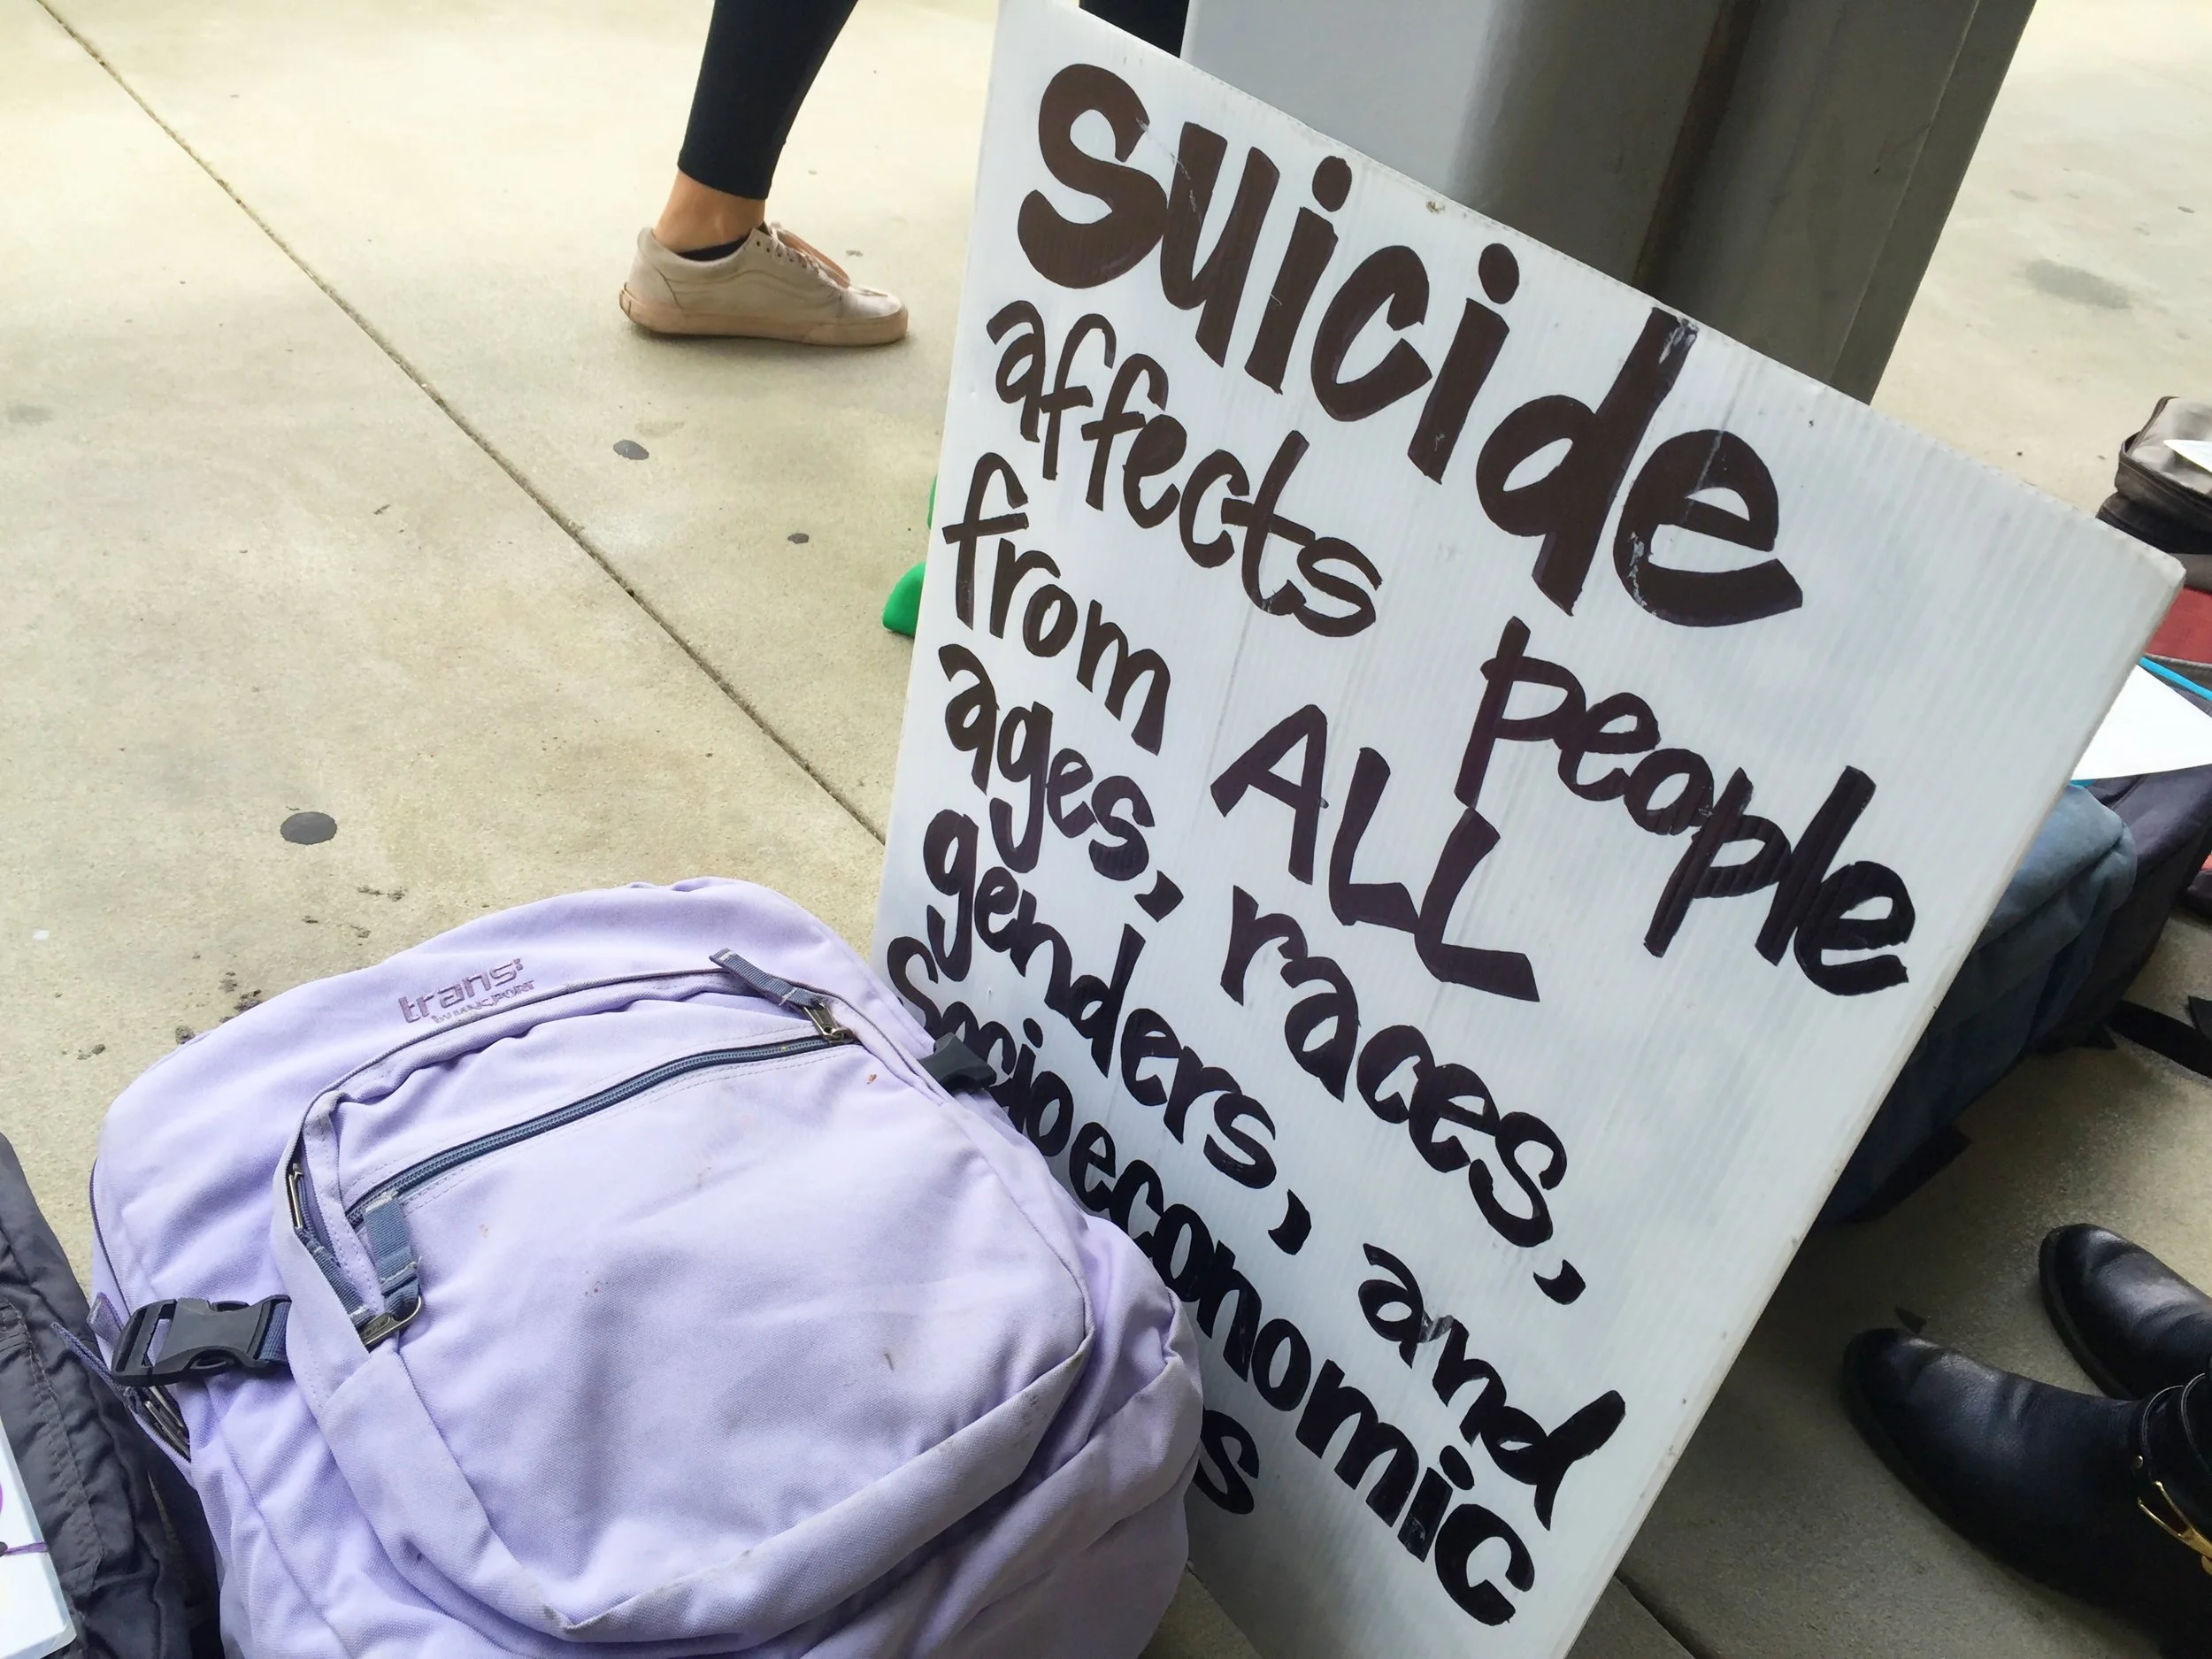 suicide
affects people
from ALL
ages, races,
genders, and
Socioeconomic
s
trans:
by JANSPORT